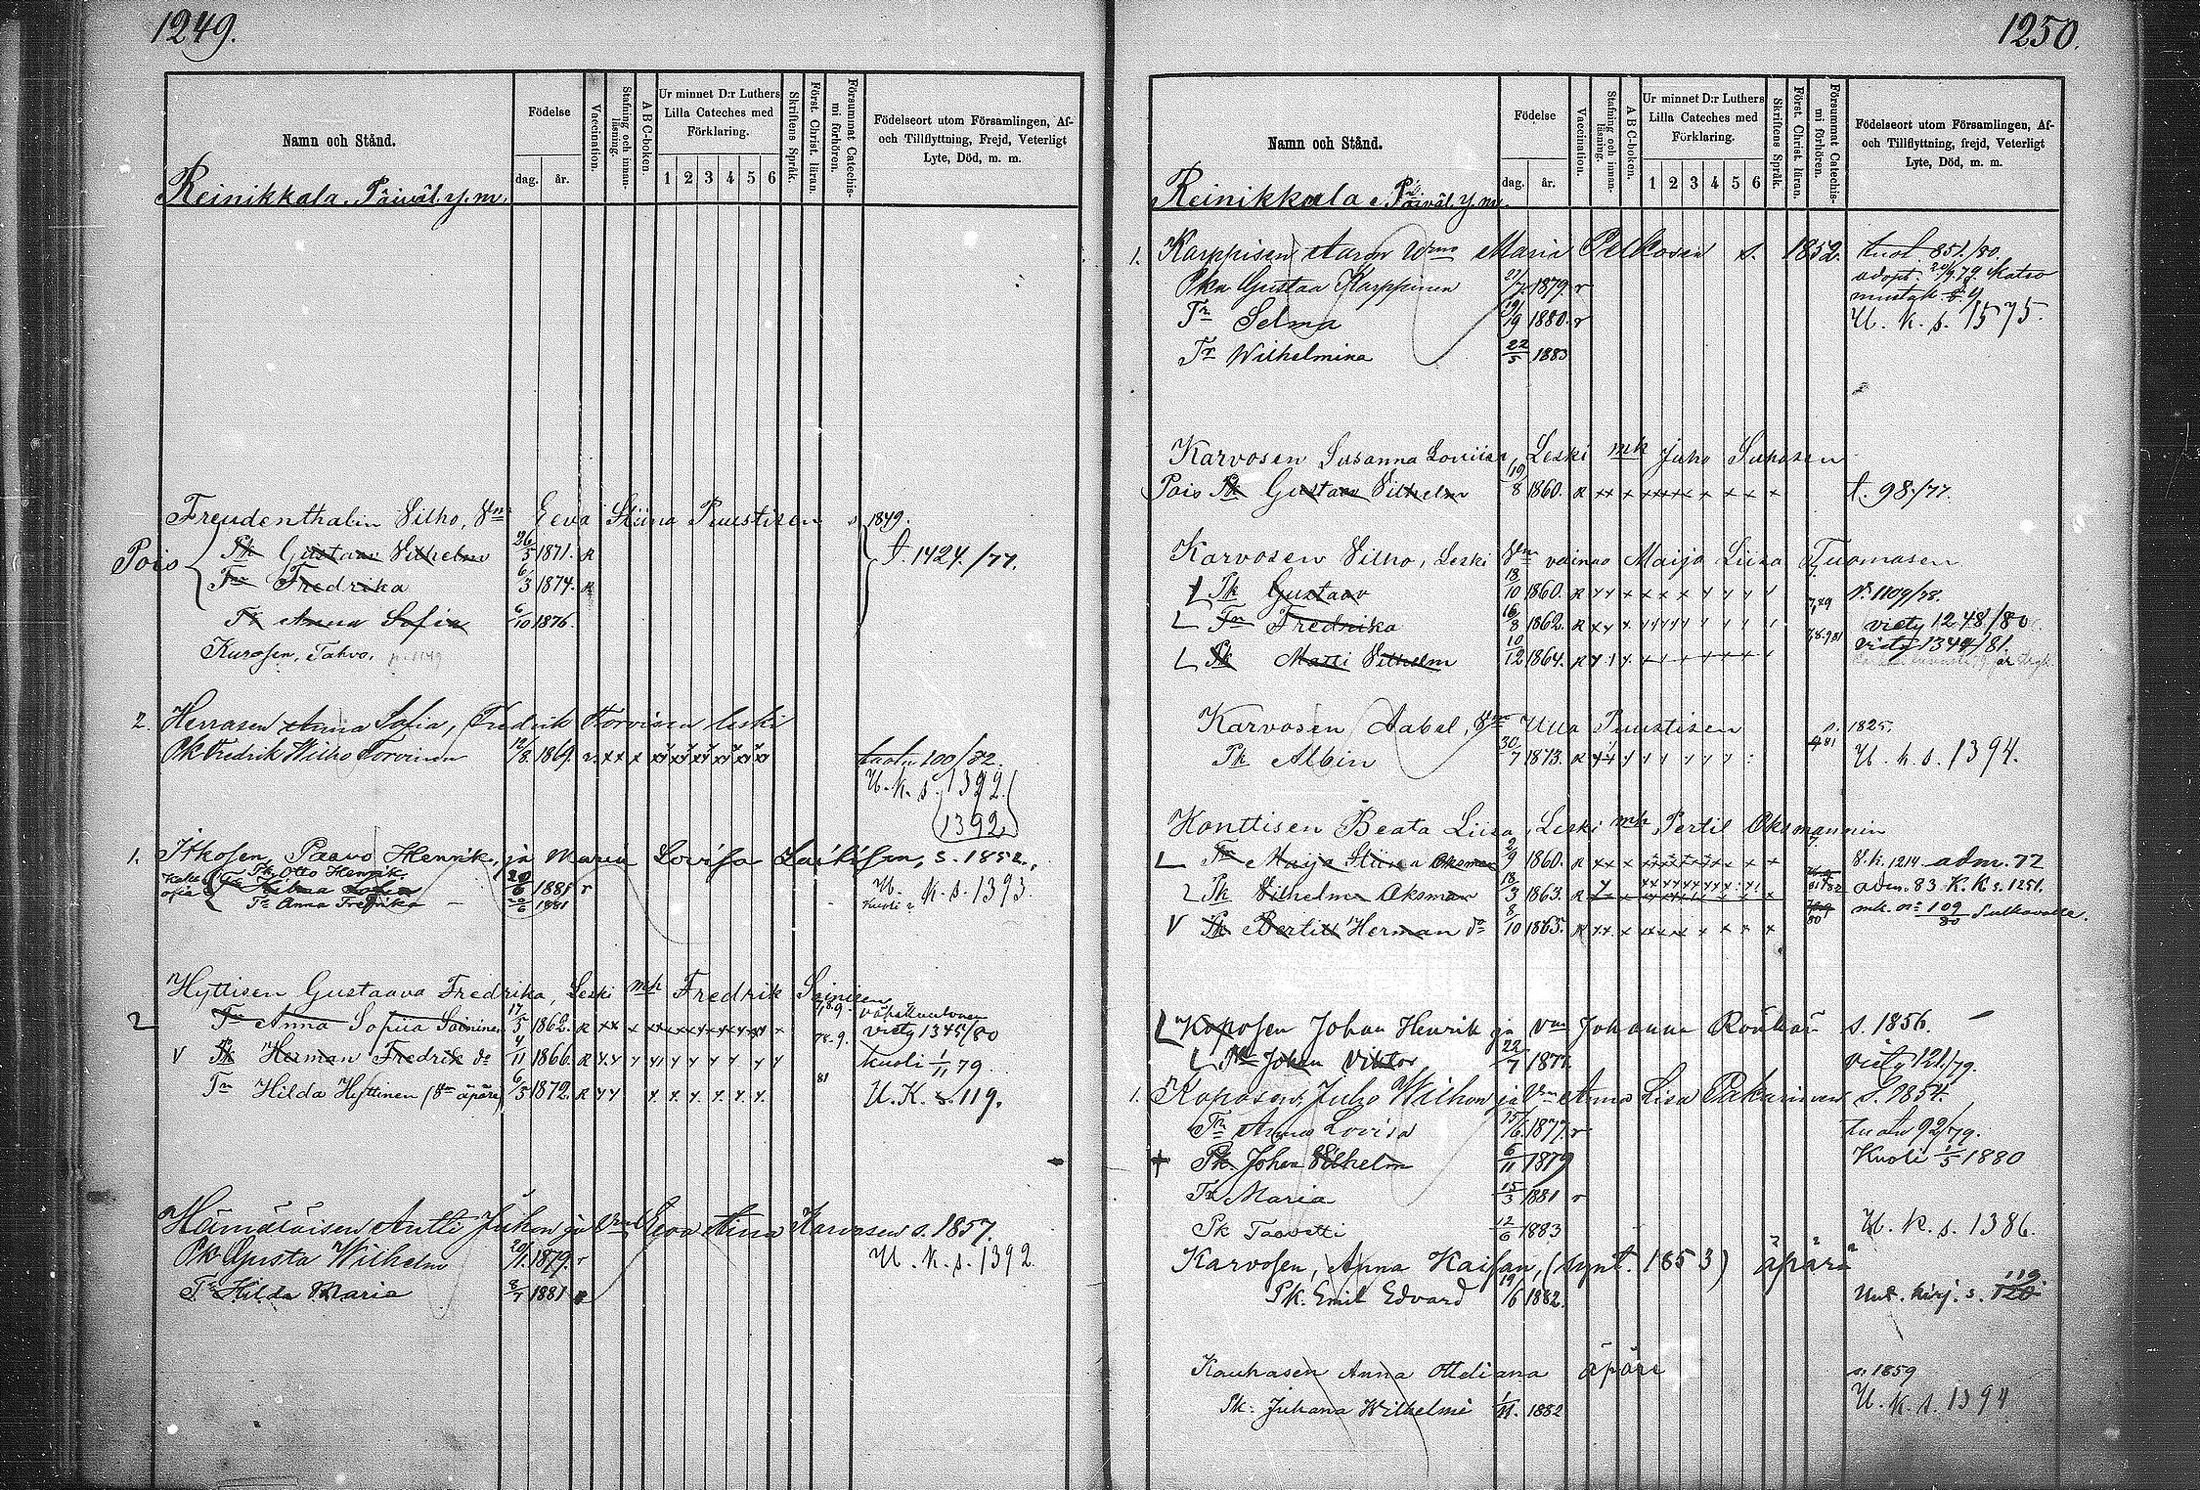 1249.
Namn och Stånd.
Födelse
dag. år.
Vaccination.
Stafning och innanläsning.
A B C-boken.
Ur minnet D:r Luthers Lilla Cateches med Förklaring.
1 2 3 4 5 6
Skriftens Språk.
Först. Christ. läran.
Försummat Catechismi förhören.
Födelseort utom Församlingen, Af-
och Tillflyttning, Frejd, Veterligt
Lyte, Död, m. m.
Reinikkala. Päiväl. y. m.
Freudenthalin Vilho, Vmo Eeva Stiina Puustisen s 1849.
Pois Pk Gustaav Vilhelm 26/5 1871. R t. 1424./77.
Tr Fredrika 6/3 1874. R
Tr Anna Sofia 6/10 1876.
Kurosen, Tahvo.
2. Herrasen Anna Sofia, Fredrik Torvisen leski
Pk Fredrik Wilho Torvinen 12/8. 1869. r. xx x
U. k. s. 1392.
(1392.)
1. Itkosen, Paavo Henrik, ja Maria Lovisa Laitisen, s. 1852.
Pk. Otto Henrik.
Tr Hilma Sofia 1881 r
Tr Anna Fredrika 1881
U. k. s. 1393.
Hyttisen Gustaava Fredrika, Leski mh Fredrik Sainisen
2 Tr Anna Sofiia Saininen 17/5 1862. R xx x 78.9. viety 1345/80
V Pk Herman Fredrik do 4/11 1866. R kuoli 1/11 79.
Tr Hilda Hyttinen (Vn äpärä) 6/5 1872. R 81 U. K. s. 119.
Hämäläisen Antti Juhon ja Vmo Eeva Stina Karvosen s. 1857.
Pk Gusta Wilhelm 20/1. 1879. r U. k. s. 1392.
Tr Hilda Maria 8/7 1881
1250.
Namn och Stånd.
Födelse
dag. år.
Vaccination.
Stafning och innanläsning.
A B C-boken.
Ur minnet D:r Luthers Lilla Cateches med Förklaring.
1 2 3 4 5 6
Skriftens Språk.
Först. Christ. läran.
Försummat Catechismi förhören.
Födelseort utom Församlingen, Af-
och Tillflyttning, frejd, Veterligt
Lyte, Död, m. m.
Reinikkala. Päiväl. y. m.
1. Karppisen Aaron Wmo Maria Pelkosen s. 1852. tuot. 851./80.
Pkn Gustaa Karppinen 1879. r
Tr Selma 19/9 1880. r U. k. s. 1575.
Tr Wilhelmina 22/5 1883
Karvosen Susanna Loviisa, Leski mh Juho Suhosen
Pois Pk Gustaav Vilhelm 19/8 1860. R xx x t. 98./77.
Karvosen Vilho, Leski Vmo vainao Maija Liisa Tuomasen
L Pk Gustaav 18/10 1860. R
L Tr Fredrika 16/8 1862. R viety 1248/80
L Pk Matti Vilhelm 10/12 1864. R viety 1344/81.
Karvosen Aabel, Vmo Ulla Puustisen s. 1825.
Pk Albin 30/7 1873. R 81 U. k. s. 1394.
Konttisen Beata Liisa, Leski mh Pertil Oksmannin
L Tr Maija Stiina Oksman 2/9 1860. R xx x
L Pk Vilhelm Oksman 18/3 1863. R adm. 83. K. K. s. 1251.
V Pk Bertill Herman do 8/10 1865. R xx x
L Koposen Johan Henrik ja Vmo Johanna s. 1856.
L Pk Johan Viktor 22/7 1877. viety 121/79.
1. Koposen, Juho Wilhon ja Vmo Anna Lisa Pakarinen s. 1854.
Tr Anna Lovisa 15/6. 1877. r tuotu 92/79.
+ Pk Johan Vilhelm 6/11 1879 Kuoli 1/5 1880
Tr Maria 15/3 1881 r
Pk Taavetti 12/6 1883 U. k. s. 1386.
Karvosen, Anna Kaisan, (synt. 1853) äpärä
Pk. Emil Edvard 19/6 1882. Uut. kirj. s. 119. 120
Kauhasen Anna Ottiliana äpäre s. 1859
Pk. Juhana Wilhelmi 1/11. 1882 U. k. s. 1394